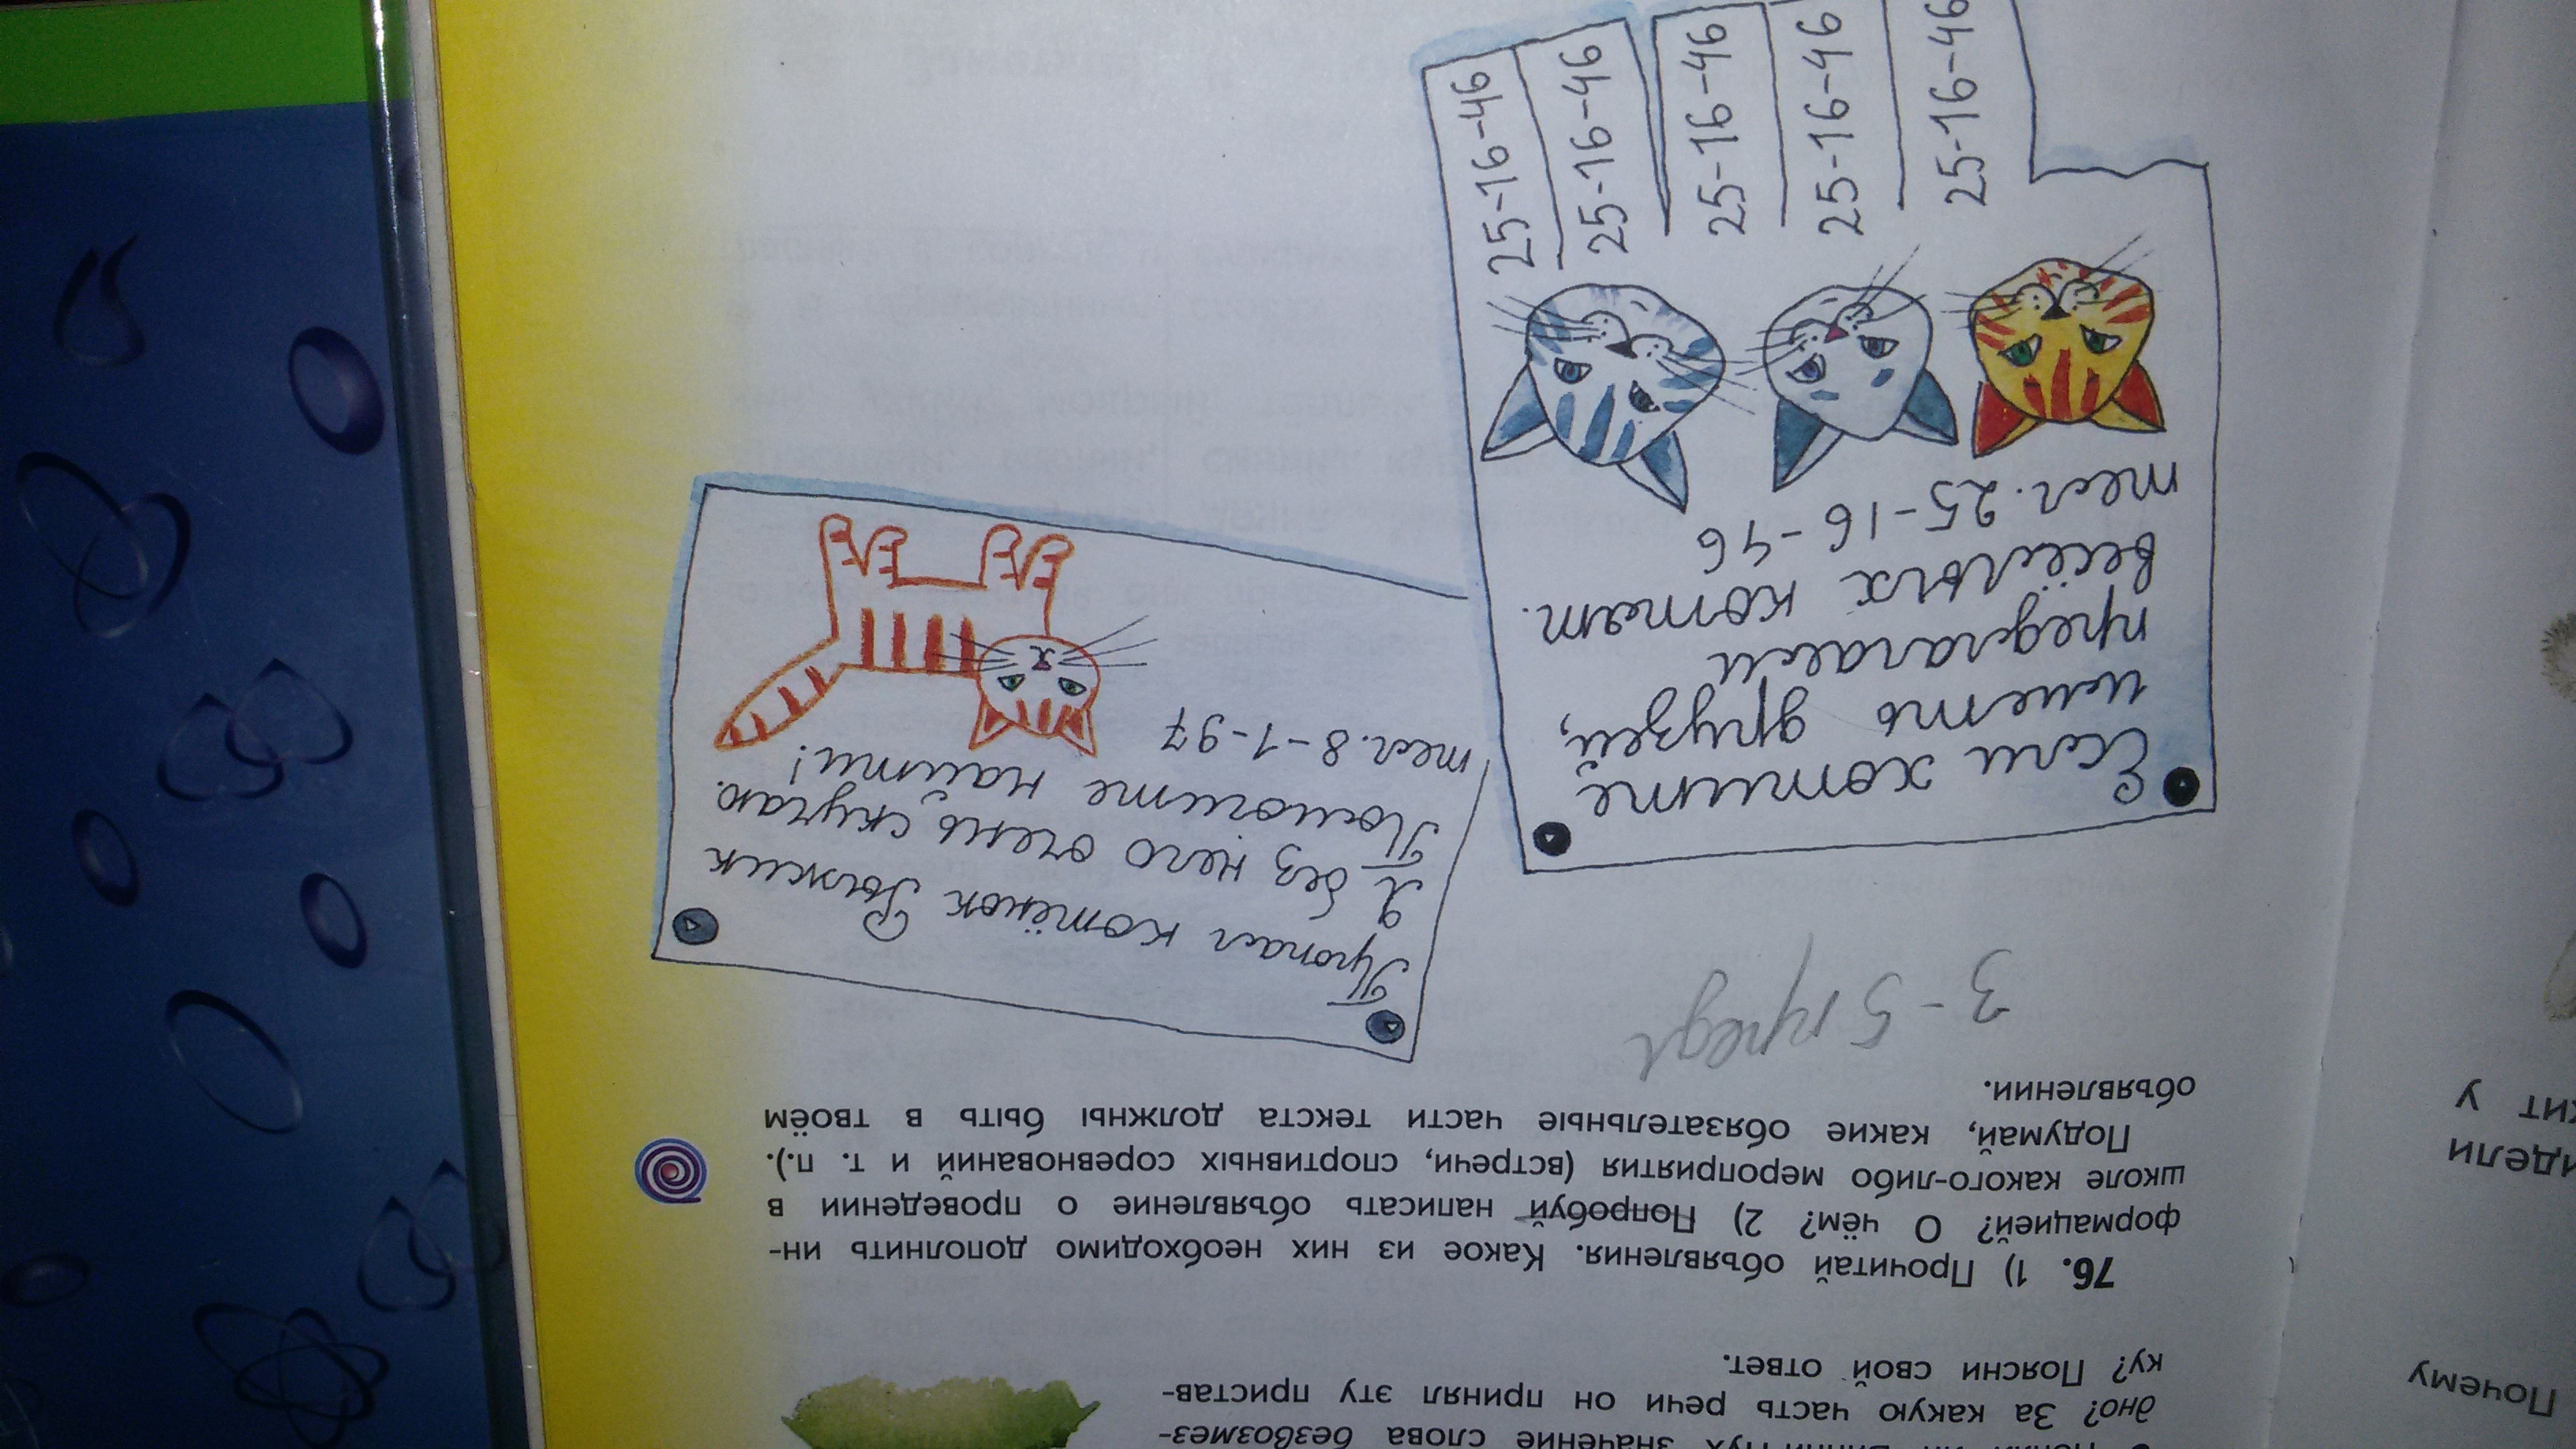 значение слова безвозмез-
дно? За какую часть речи он принял эту пристав-
ку? Поясни свой ответ.
76. 1) Прочитай объявления. Какое из них необходимо дополнить ин-
формацией? О чём? 2) Попробуй написать объявление о проведении в
школе какого-либо мероприятия (встречи, спортивных соревнований и т. п.).
Подумай, какие обязательные части текста должны быть в твоём
объявлении.
3-5 предл
Если хотите
иметь друзей,
предлагаем
весёлых котят.
тел. 25-16-46
25-16-46
25-16-46
25-16-46
25-16-46
25-16-46
Пропал котёнок Рыжик
Я без него очень скучаю.
Помогите найти!
тел. 8-1-97
Почему